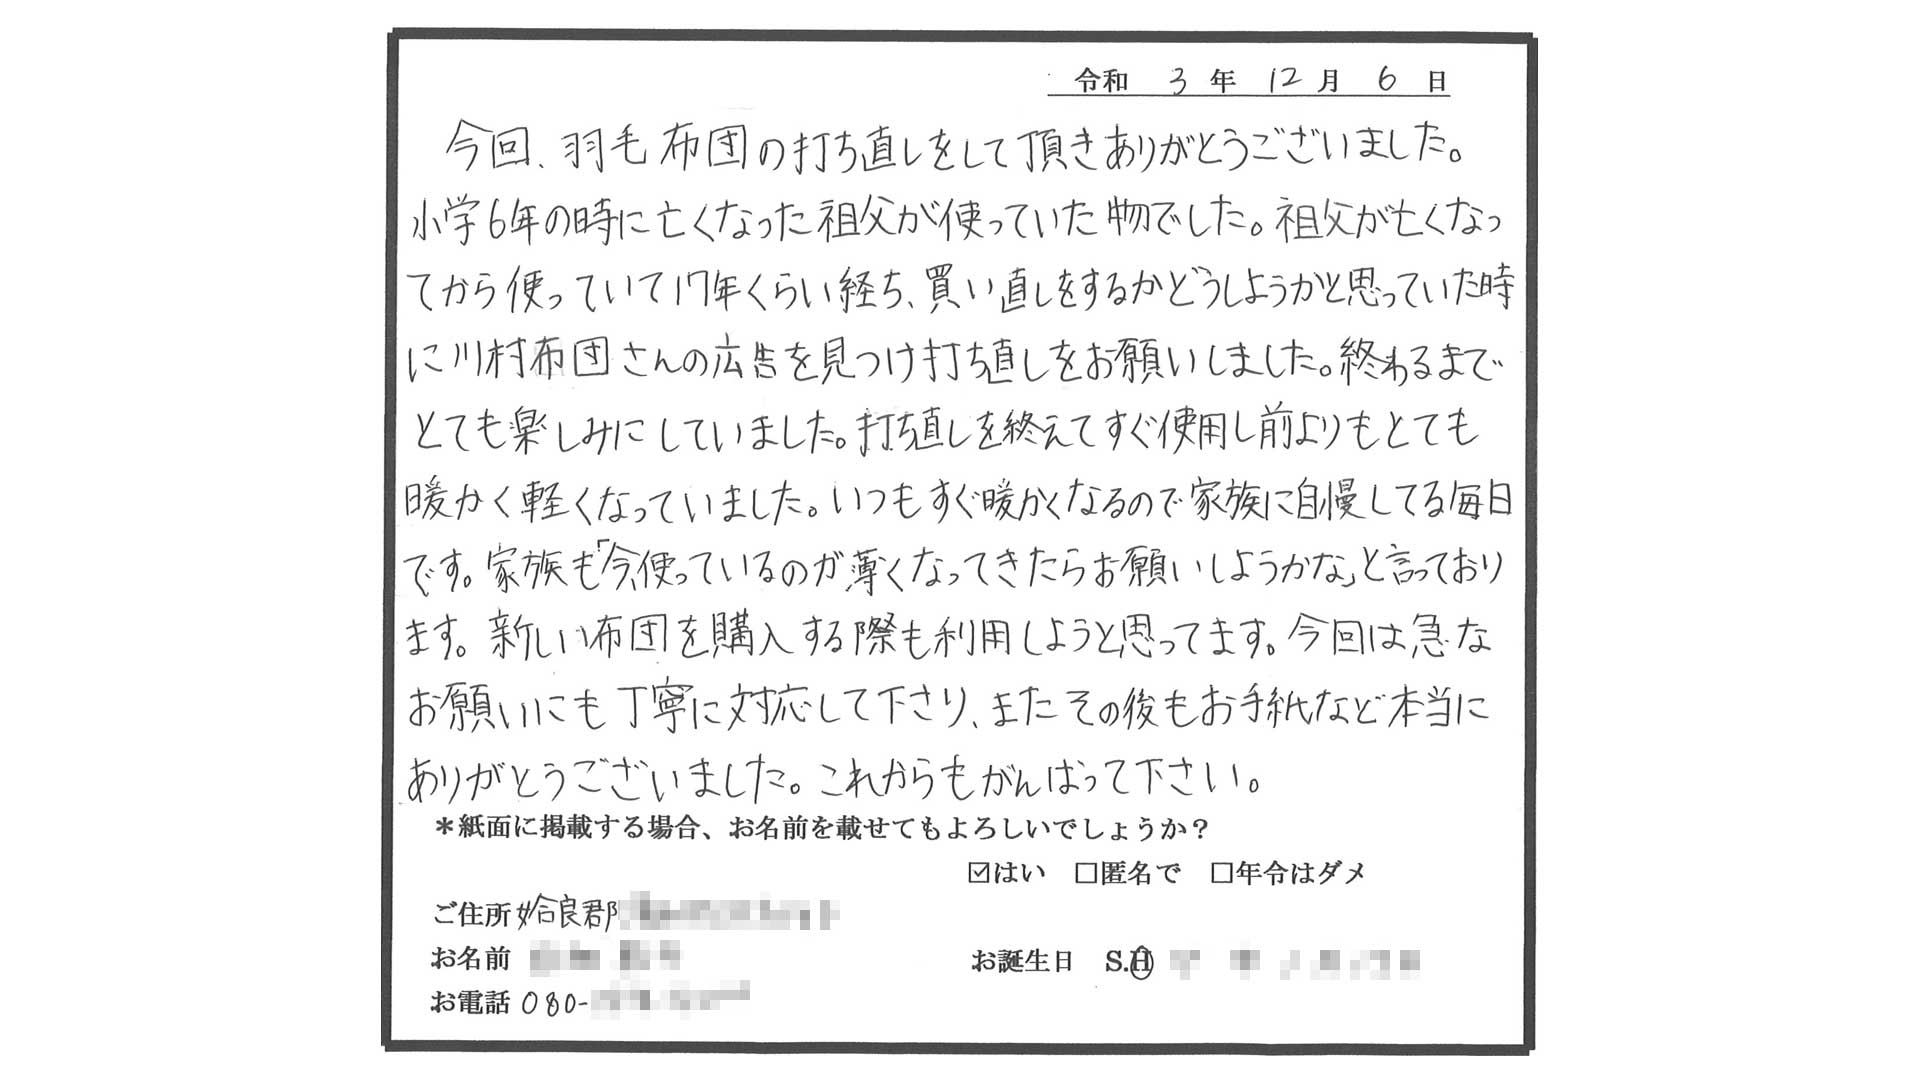 令和 3 年 12 月 6 日
今回、羽毛布団の打ち直しをして頂きありがとうございました。
小学6年の時に亡くなった祖父が使っていた物でした。祖父が亡くなっ
てから使っていて17年くらい経ち、買い直しをするかどうしようかと思っていた時
に川村布団さんの広告を見つけ打ち直しをお願いしました。終わるまで
とても楽しみにしていました。打ち直しを終えてすぐ使用し前よりもとても
暖かく軽くなっていました。いつもすぐ暖かくなるので家族に自慢してる毎日
です。家族も「今使っているのが薄くなってきたらお願いしようかな」と言っており
ます。新しい布団を購入する際も利用しようと思ってます。今回は急な
お願いにも丁寧に対応して下さり、またその後もお手紙など本当に
ありがとうございました。これからもがんばって下さい。
＊紙面に掲載する場合、お名前を載せてもよろしいでしょうか？
☑はい □匿名で □年令はダメ
ご住所 姶良郡
お名前
お誕生日 S.H
お電話 080-